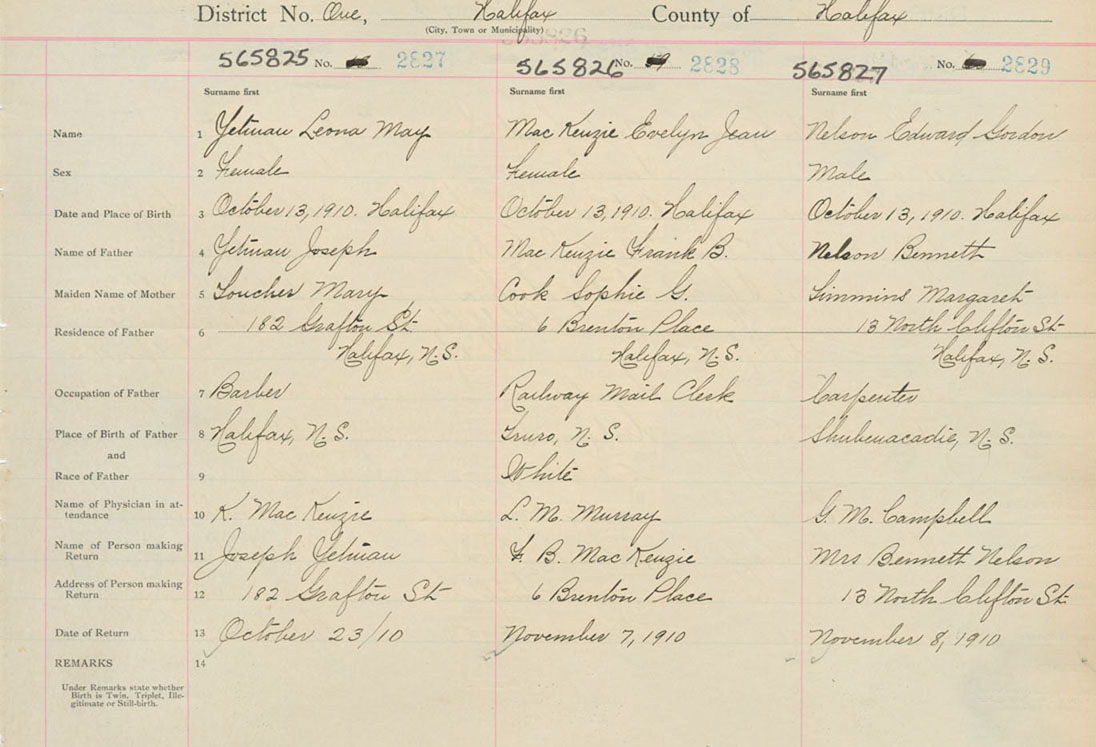 District No. One, Halifax County of Halifax
(City, Town or Municipality)
565825 No. 2827 565826 No. 2828 565827 No. 2829
Surname first Surname first Surname first
Name 1 Yetman Leona May Mac Kenzie Evelyn Jean Nelson Edward Gordon
Sex 2 Female Female Male
Date and Place of Birth 3 October 13, 1910. Halifax October 13, 1910. Halifax October 13, 1910. Halifax
Name of Father 4 Yetman Joseph Mac Kenzie Frank B. Nelson Bennett
Maiden Name of Mother 5 Mary Cook Sophie G. Simmins Margaret
Residence of Father 6 182 Grafton St. 6 Brenton Place 13 North Clifton St
Halifax, N.S. Halifax, N.S. Halifax, N.S.
Occupation of Father 7 Barber Railway Mail Clerk Carpenter
Place of Birth of Father 8 Halifax, N.S. Truro, N.S. Shubenacadie, N.S.
and
Race of Father 9 White
Name of Physician in at-
tendance 10 K. Mac Kenzie L. M. Murray G. M. Campbell
Name of Person making
Return 11 Joseph Yetman F. B. Mac Kenzie Mrs Bennett Nelson
Address of Person making
Return 12 182 Grafton St 6 Brenton Place 13 North Clifton St.
Date of Return 13 October 23/10 November 7, 1910 November 8, 1910
REMARKS 14
Under Remarks state whether
Birth is Twin, Triplet, Ille-
gitimate or Still-birth.